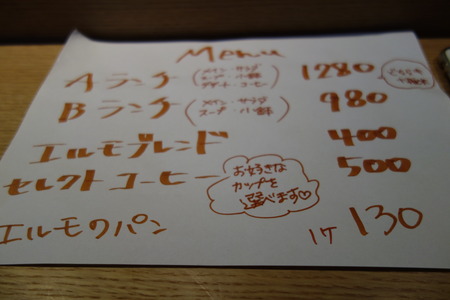 Menu
Aランチ (メイン・サラダ スープ・小鉢 デザート・コーヒー) 1280
Bランチ (メイン・サラダ スープ・小鉢) 980
エルモブレンド 400
セレクトコーヒー 500
お好きな
カップを
選べます♡
エルモのパン 1ケ 130